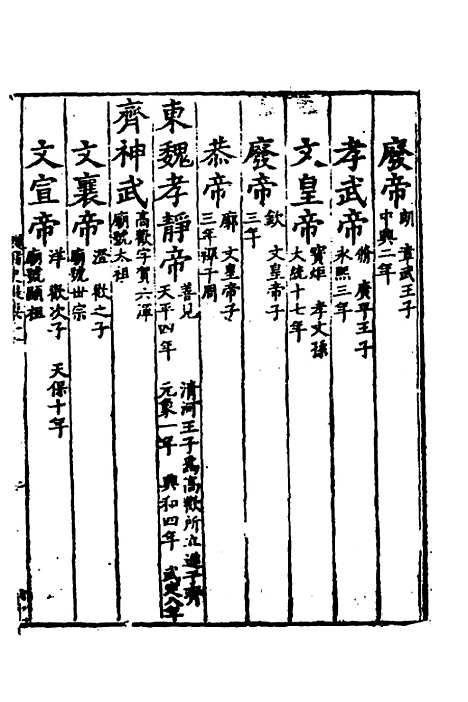 廢帝 朗 章武王子
中興二年
孝武帝 脩 廣平王子
永熙三年
文皇帝 寶炬 孝文孫
大統十七年
廢帝 欽 文皇帝子
三年
恭帝 廓 文皇帝子
三年禪于周
東魏孝靜帝 善見 清河王子為高歡所立遜于齊
天平四年 元象一年 興和四年 武定八年
齊神武 高歡字賀六渾
廟號太祖
文襄帝 澄 歡之子
廟號世宗
文宣帝 洋 歡次子 天保十年
廟號顯祖